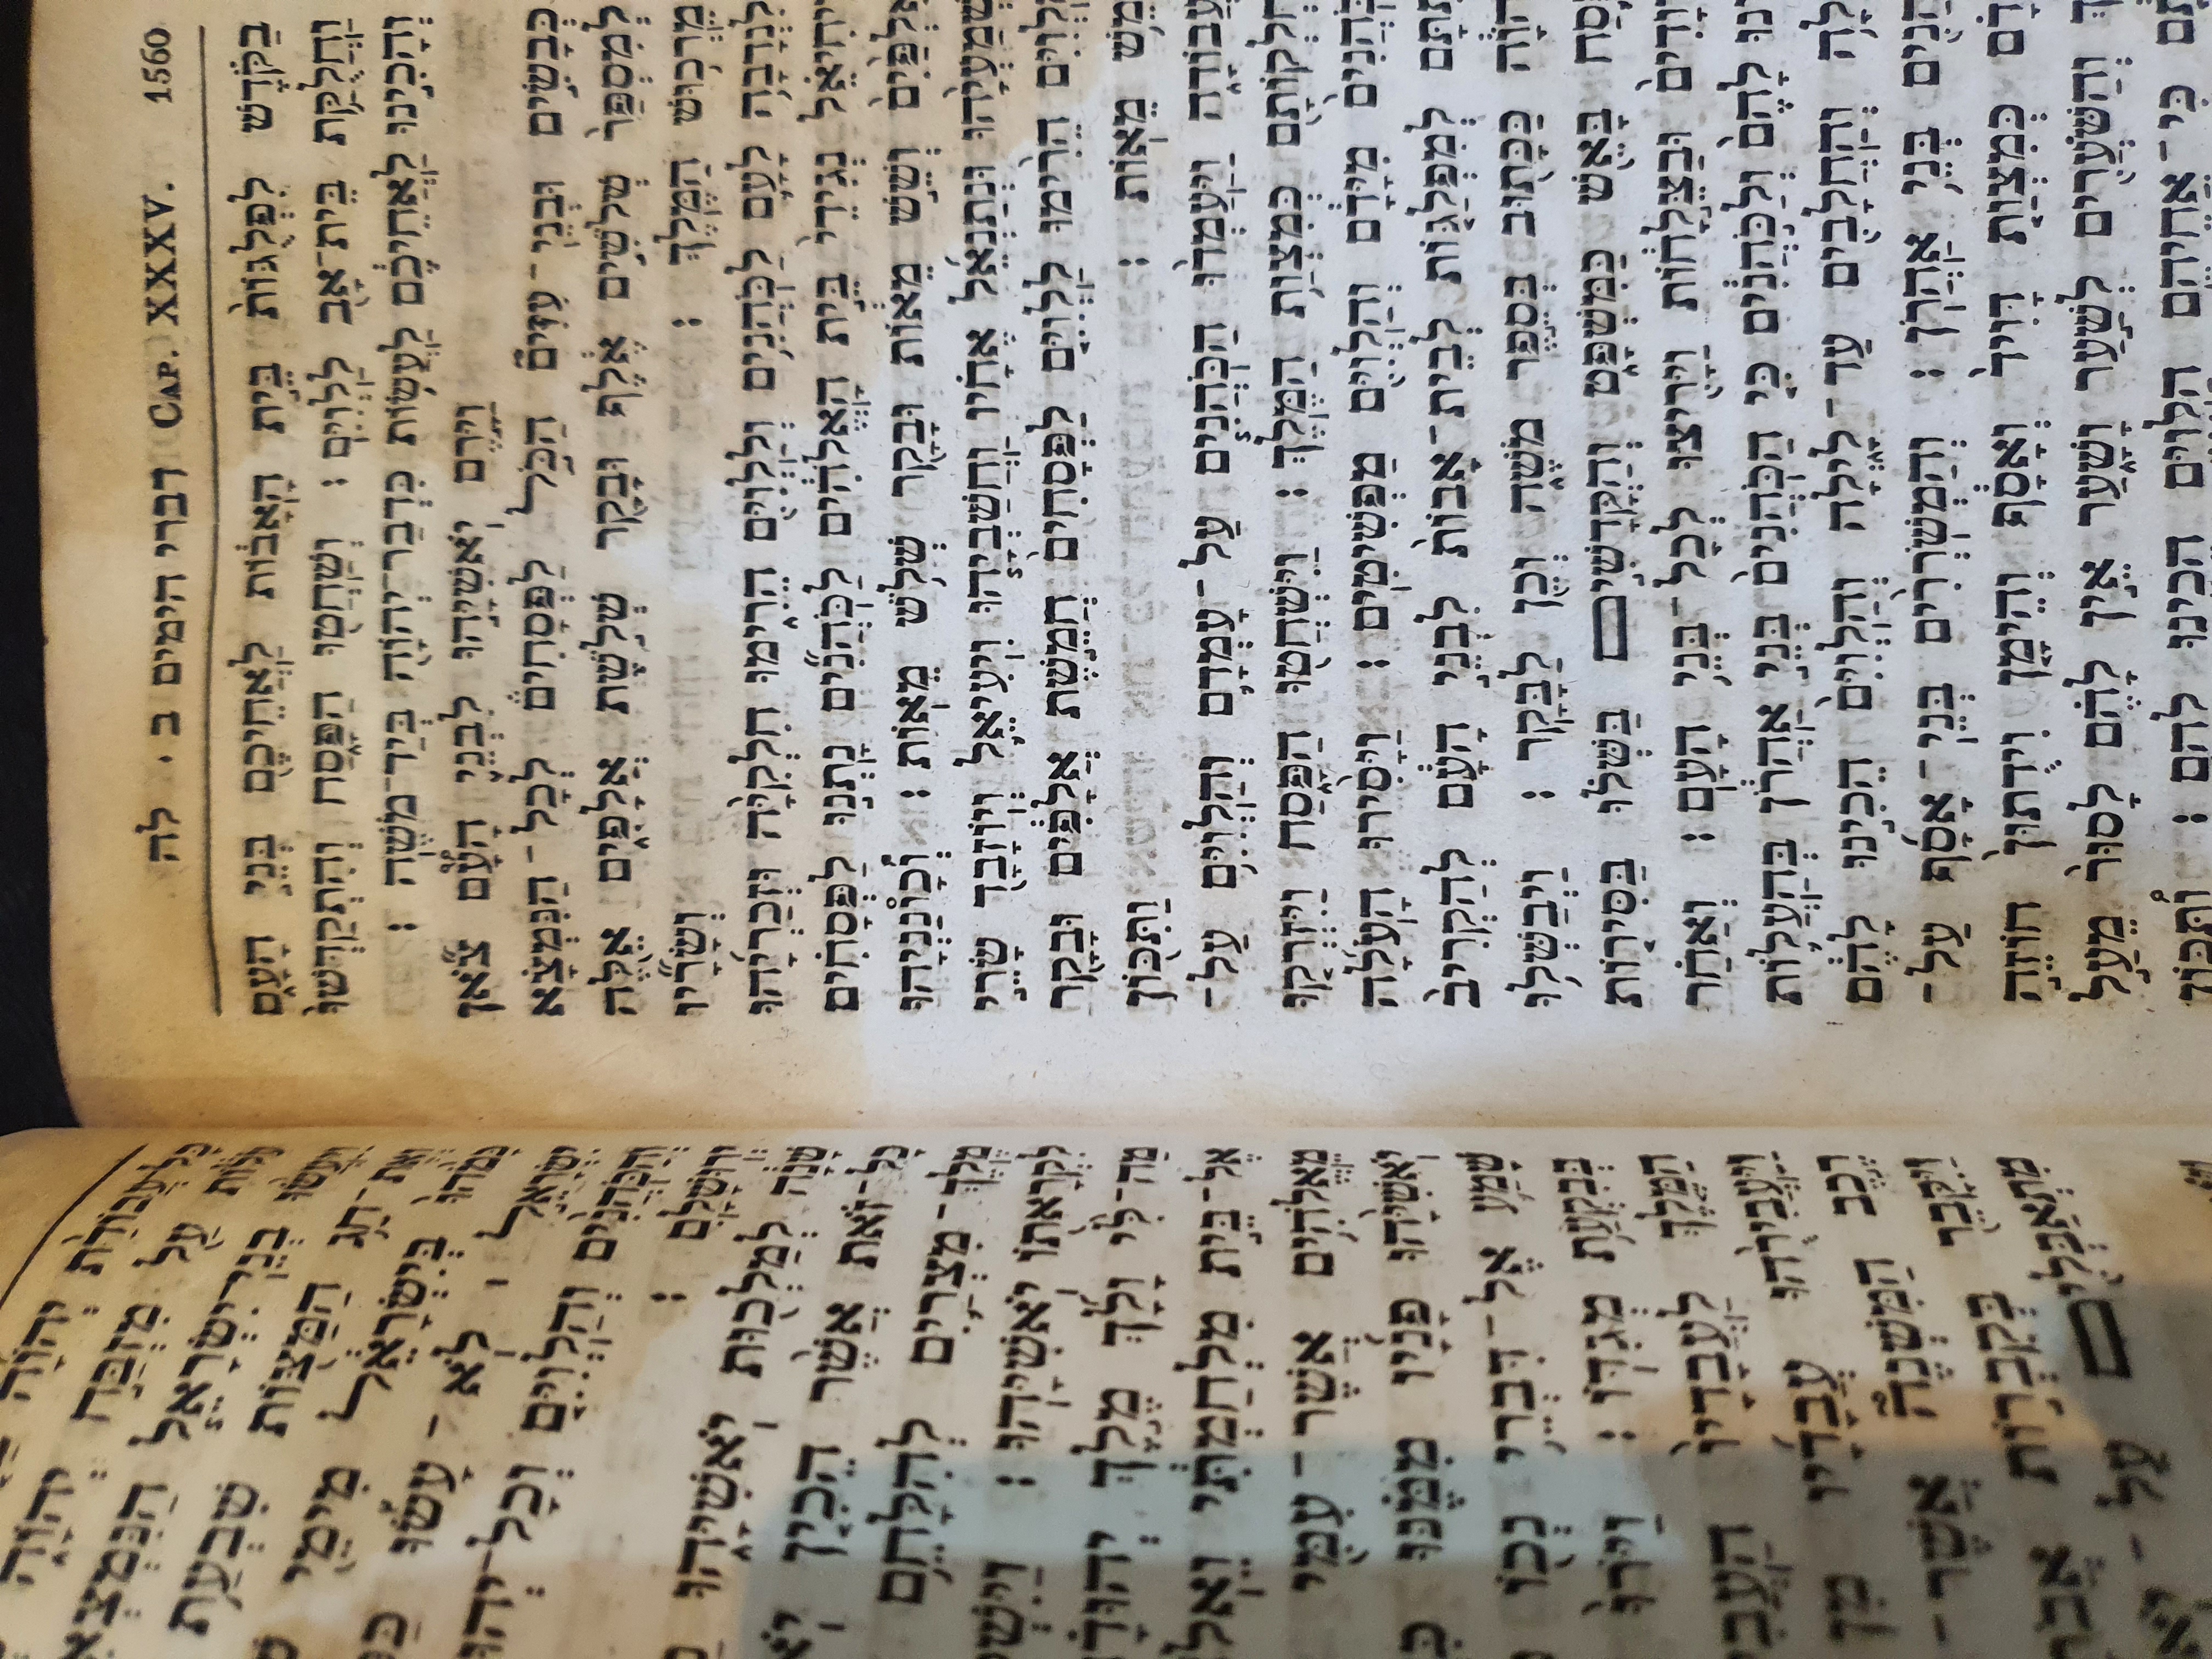 1560 CAP. XXXV. דברי הימים ב . לה
בַּקֹּדֶשׁ לִפְלֻגּוֹת בֵּית הָאָבוֹת לַאֲחֵיכֶם בְּנֵי הָעָם
וַחֲלֻקַּת בֵּית־אָב לַלְוִיִּם : וְשַׁחֲטוּ הַפָּסַח וְהִתְקַדְּשׁוּ
וְהָכִינוּ לַאֲחֵיכֶם לַעֲשׂוֹת כִּדְבַר־יְהוָה בְּיַד־מֹשֶׁה :
וַיָּרֶם יֹאשִׁיָּהוּ לִבְנֵי הָעָם צֹאן
כְּבָשִׂים וּבְנֵי־עִזִּים הַכֹּל לַפְּסָחִים לְכָל־הַנִּמְצָא
לְמִסְפַּר שְׁלֹשִׁים אֶלֶף וּבָקָר שְׁלֹשֶׁת אֲלָפִים אֵלֶּה
מֵרְכוּשׁ הַמֶּלֶךְ : וְשָׂרָיו
לִנְדָבָה לָעָם לַכֹּהֲנִים וְלַלְוִיִּם הֵרִימוּ חִלְקִיָּה וּזְכַרְיָהוּ
וִיחִיאֵל נְגִידֵי בֵּית הָאֱלֹהִים לַכֹּהֲנִים נָתְנוּ לַפְּסָחִים
אַלְפַּיִם וְשֵׁשׁ מֵאוֹת וּבָקָר שְׁלֹשׁ מֵאוֹת : וְכָונַנְיָהוּ
וּשְׁמַעְיָהוּ וּנְתַנְאֵל אֶחָיו וַחֲשַׁבְיָהוּ וִיעִיאֵל וְיוֹזָבָד שָׂרֵי
הַלְוִיִּם הֵרִימוּ לַלְוִיִּם לַפְּסָחִים חֲמֵשֶׁת אֲלָפִים וּבָקָר
מֵאוֹת : וַתִּכּוֹן
הָעֲבוֹדָה וַיַּעַמְדוּ הַכֹּהֲנִים עַל־עָמְדָם וְהַלְוִיִּם עַל־
מַחְלְקוֹתָם כְּמִצְוַת הַמֶּלֶךְ : וַיִּשְׁחֲטוּ הַפָּסַח וַיִּזְרְקוּ
הַכֹּהֲנִים מִיָּדָם וְהַלְוִיִּם מַפְשִׁיטִים : וַיָּסִירוּ הָעֹלָה
לְמִפְלַגּוֹת לְבֵית־אָבוֹת לִבְנֵי הָעָם לְהַקְרִיב
כַּכָּתוּב בְּסֵפֶר מֹשֶׁה וְכֵן לַבָּקָר : וַיְבַשְּׁלוּ
בָּאֵשׁ כַּמִּשְׁפָּט וְהַקֳּדָשִׁים בִּשְּׁלוּ בַּסִּירוֹת
וּבַצֵּלָחוֹת וַיָּרִיצוּ לְכָל־בְּנֵי הָעָם : וְאַחַר
לָהֶם וְלַכֹּהֲנִים כִּי הַכֹּהֲנִים בְּנֵי אַהֲרֹן בְּהַעֲלוֹת
וְהַחֲלָבִים עַד־לָיְלָה וְהַלְוִיִּם הֵכִינוּ לָהֶם
בְּנֵי אַהֲרֹן : וְהַמְשֹׁרֲרִים בְּנֵי־אָסָף עַל־
כְּמִצְוַת דָּוִיד וְאָסָף וְהֵימָן וִידֻתוּן חוֹזֵה
וְהַשֹּׁעֲרִים לְשַׁעַר וָשָׁעַר אֵין לָהֶם לָסוּר מֵעַל
כִּי־אֲחֵיהֶם הַלְוִיִּם הֵכִינוּ לָהֶם : וַתִּכּוֹן
כָּל־עֲבוֹדַת יְהוָה
עַל מִזְבַּח יְהוָה
וַיַּעֲשׂוּ בְנֵי־יִשְׂרָאֵל
וְאֶת־חַג הַמַּצּוֹת שִׁבְעַת
כָּמֹהוּ בְּיִשְׂרָאֵל מִימֵי
יִשְׂרָאֵל לֹא־עָשׂוּ
וְהַכֹּהֲנִים וְהַלְוִיִּם
וִירוּשָׁלִָם :
שָׁנָה לְמַלְכוּת יֹאשִׁיָּהוּ
כָל־זֹאת אֲשֶׁר הֵכִין
מֶלֶךְ־מִצְרַיִם לְהִלָּחֵם
לִקְרָאתוֹ יֹאשִׁיָּהוּ :
מַה־לִּי וָלָךְ מֶלֶךְ
אֶל־בֵּית מִלְחַמְתִּי
מֵאֱלֹהִים אֲשֶׁר־עִמִּי
יֹאשִׁיָּהוּ פָּנָיו מִמֶּנּוּ
שָׁמַע אֶל־דִּבְרֵי נְכוֹ
בְּבִקְעַת מְגִדּוֹ :
הַמֶּלֶךְ לַעֲבָדָיו
וַיַּעֲבִירֻהוּ עֲבָדָיו מִן
רֶכֶב הַמִּשְׁנֶה אֲשֶׁר־
וַיִּקָּבֵר בְּקִבְרוֹת
מִתְאַבְּלִים עַל־